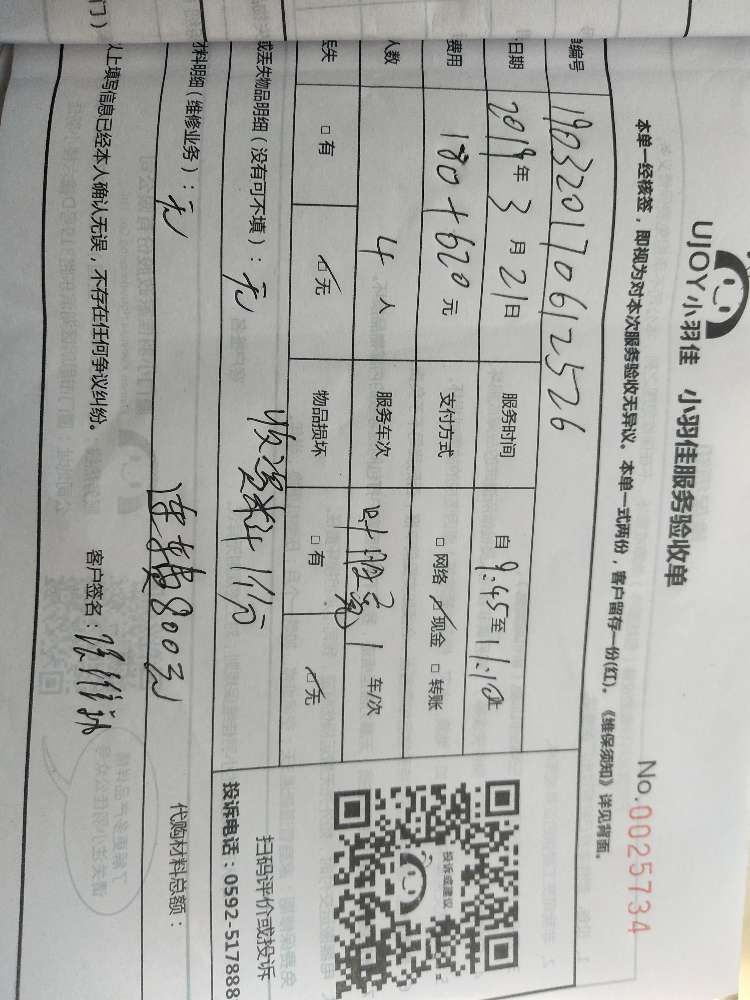 UJOY小羽佳 小羽佳服务验收单
No.0025734
本单一经核签，即视为对本次服务验收无异议。本单一式两份，客户留存一份(红)。《维保须知》详见背面。
编号 190320170612526
日期 2019年3月21日 服务时间 自9:45至11:10止
费用 180+620元 支付方式 □网络 ☑现金 □转账
人数 4人 服务车次 1车/次
丢失 □有 ☑无 物品损坏 □有 ☑无
或丢失物品明细（没有可不填）：无
收 1份
材料明细（维修业务）：无
800元
代购材料总额：
以上填写信息已经本人确认无误，不存在任何争议纠纷。
客户签名：
投诉或建议
扫码评价或投诉
投诉电话：0592-517888